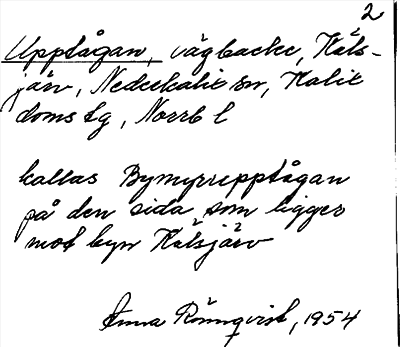 2
Upptågan, vägbacke, Häls-
järv, Nederkalix sn, Kalix
doms lg, Norrb l
kallas Bymyrrupptågan
på den sida som ligger
mot byn Hälsjärv
Anna Rönnqvist, 1954